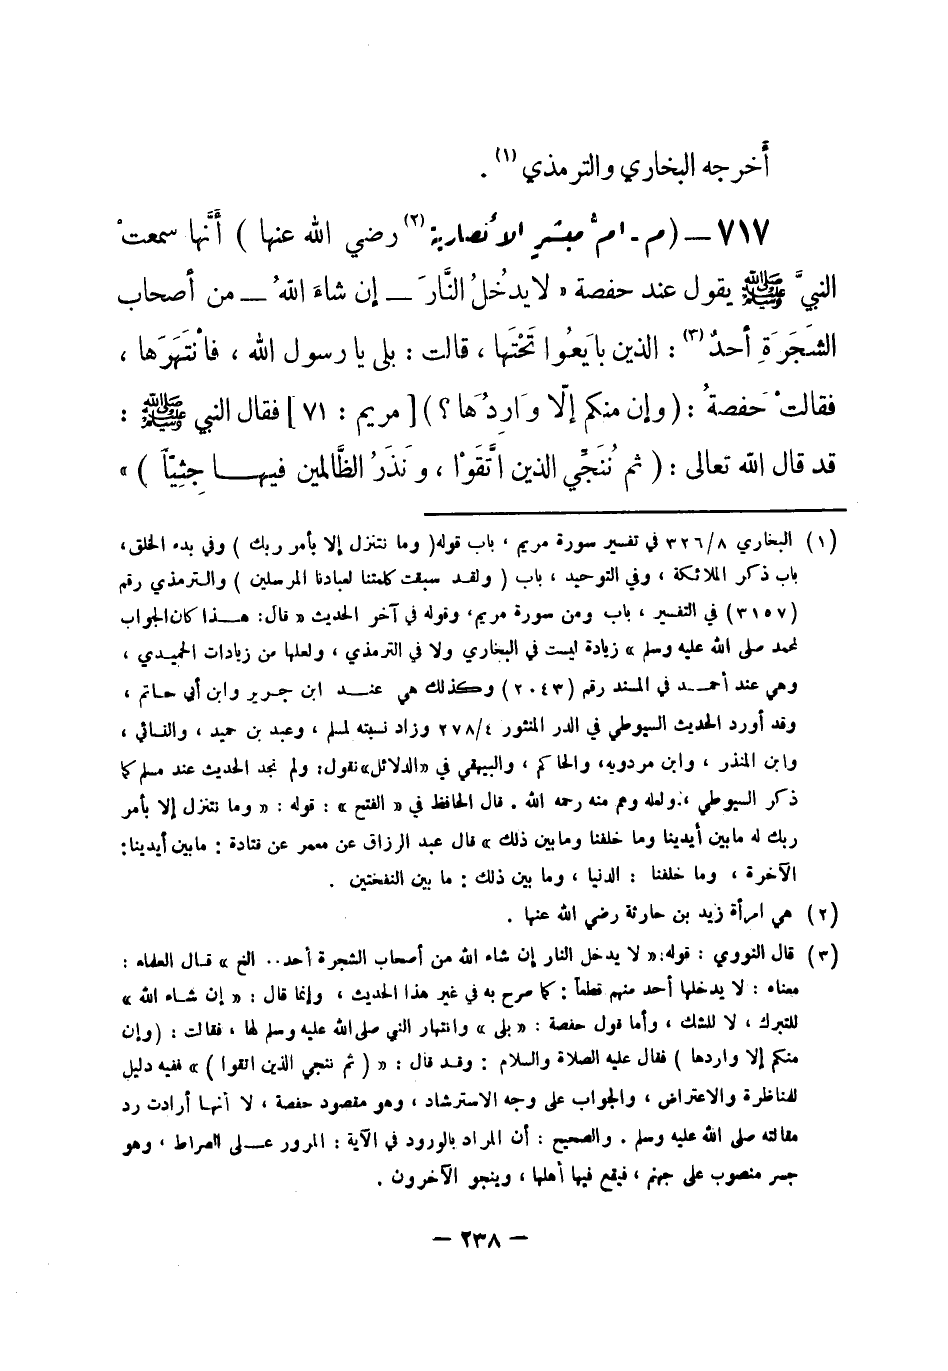 أَخرجه البخاري والترمذي (١) .
٧١٧ ــ (م - أم مبشر الأنصارية (٢) رضي الله عنها ) أَنَّها سمعتْ
النبيَّ ﷺ يقول عند حفصة « لا يدخُلُ النَّارَ ــ إن شاءَ اللهُ ــ من أصحاب
الشجَرَةِ أحدٌ (٣) : الذين بايَعُوا تَحْتَها ، قالت : بلى يا رسول الله ، فانْتَهَرَها ،
فقالتْ حَفصةُ : ( وإن منكم إلَّا وَارِدُها ؟ ) [ مريم : ٧١ ] فقال النبي ﷺ :
قد قال الله تعالى : ( ثم نُنَجِّي الذين اتَّقَوْا ، ونَذَرُ الظَّالمين فيهـا جِثِيّاً ) »
(١) البخاري ٣٢٦/٨ في تفسير سورة مريم ، باب قوله( وما نتنزل إلا بأمر ربك ) وفي بدء الخلق،
باب ذكر الملائكة ، وفي التوحيد ، باب ( ولقد سبقت كلمتنا لعبادنا المرسلين ) والترمذي رقم
(٣١٥٧) في التفسير ، باب ومن سورة مريم، وقوله في آخر الحديث « قال: هـذا كان الجواب
لمحمد صلى الله عليه وسلم » زيادة ليست في البخاري ولا في الترمذي ، ولعلها من زيادات الحميدي ،
وهي عند أحمـد في المسند رقم (٢٠٤٣) وكذلك هي عنـد ابن جرير وابن أبي حاتم ،
وقد أورد الحديث السيوطي في الدر المنثور ٢٧٨/٤ وزاد نسبته لمسلم ، وعبد بن حميد ، والنسائي ،
وابن المنذر ، وابن مردويه، والحاكم ، والبيهقي في «الدلائل»نقول: ولم نجد الحديث عند مسلم كما
ذكر السيوطي ، ولعله وهم منه رحمه الله . قال الحافظ في « الفتح » : قوله : « وما نتنزل إلا بأمر
ربك له مابين أيدينا وما خلفنا ومابين ذلك » قال عبد الرزاق عن معمر عن قتادة : مابين أيدينا:
الآخرة ، وما خلفنا : الدنيا ، وما بين ذلك : ما بين النفختين .
(٢) هي امرأة زيد بن حارثة رضي الله عنها .
(٣) قال النووي : قوله:« لا يدخل النار إن شاء الله من أصحاب الشجرة أحد.. الخ » قـال العلماء :
معناه : لا يدخلها أحد منهم قطعاً : كما صرح به في غير هذا الحديث ، وإنما قال : « إن شـاء الله »
للتبرك ، لا للشك ، وأما قول حفصة : « بلى » وانتهار النبي صلى الله عليه وسلم لها ، فقالت : (وإن
منكم إلا واردها ) فقال عليه الصلاة والسلام : وقـد قال : « ( ثم ننجي الذين اتقوا ) » ففيه دليل
للمناظرة والاعتراض ، والجواب على وجه الاسترشاد ، وهو مقصود حفصة ، لا أنهـا أرادت رد
مقالته صلى الله عليه وسلم . والصحيح : أن المراد بالورود في الآية : المرور عـلى الصراط ، وهو
جسر منصوب على جهنم ، فيقع فيها أهلها ، وينجو الآخرون .
— ٢٣٨ —